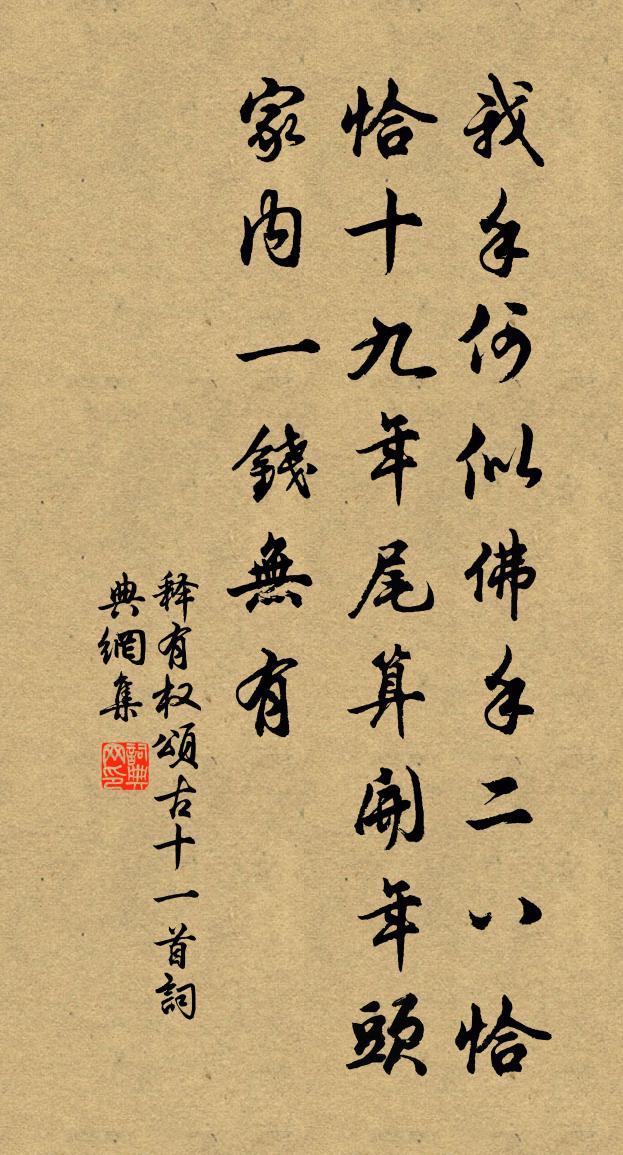 我手何似佛手二八恰
恰十九年尾算開年頭
家内一錢無有
释有权頌古十一首詞
典網集
詞典網印